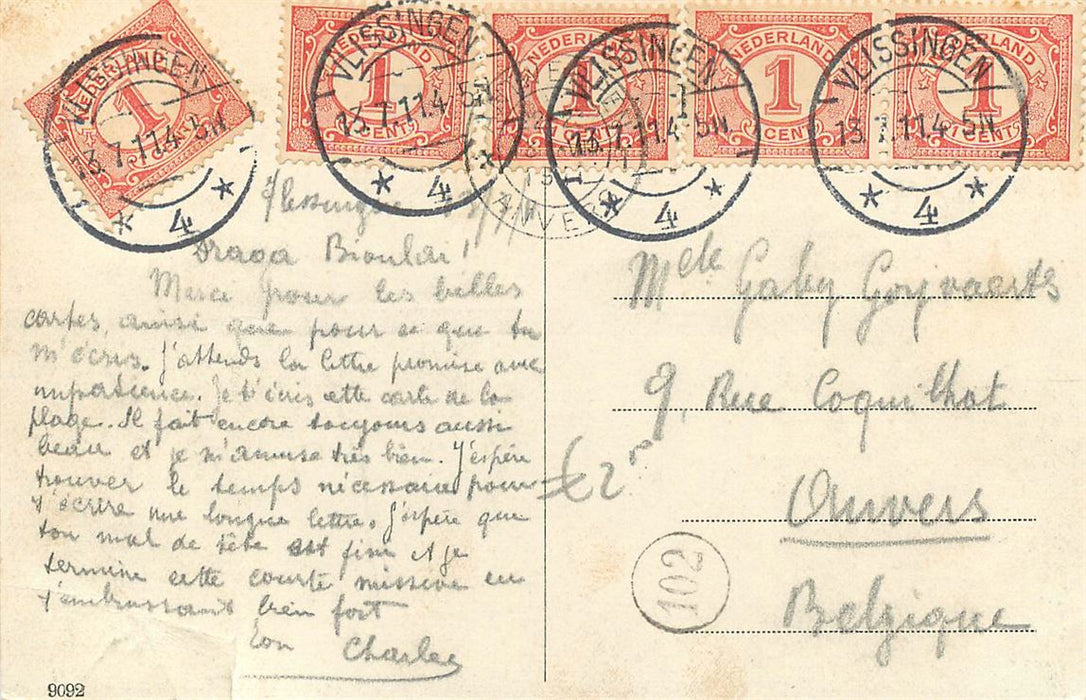 NEDERLAND 1 CENT
NEDERLAND 1 CENT
NEDERLAND 1 CENT
NEDERLAND 1 CENT
NEDERLAND 1 CENT
VLISSINGEN 13.7.11 4-5N 4
VLISSINGEN 13.7.11 4-5N 4
VLISSINGEN 13.7.11 4-5N 4
VLISSINGEN 13.7.11 4-5N 4
ANVERS
Draga
Merci pour les belles
cartes, ainsi que pour ce que tu
m'écris. J'attends la lettre promise avec
impatience. Je t'écris cette carte de la
plage. Il fait encore toujours aussi
beau et je m'amuse très bien. J'espère
trouver le temps nécessaire pour
t'écrire une longue lettre. J'espère que
ton mal de tête est fini et je
termine cette courte missive en
t'embrassant bien fort
ton Charles
Mlle Gaby Goyvaerts
9, Rue Coquilhat
Anvers
Belgique
€2
102
9092